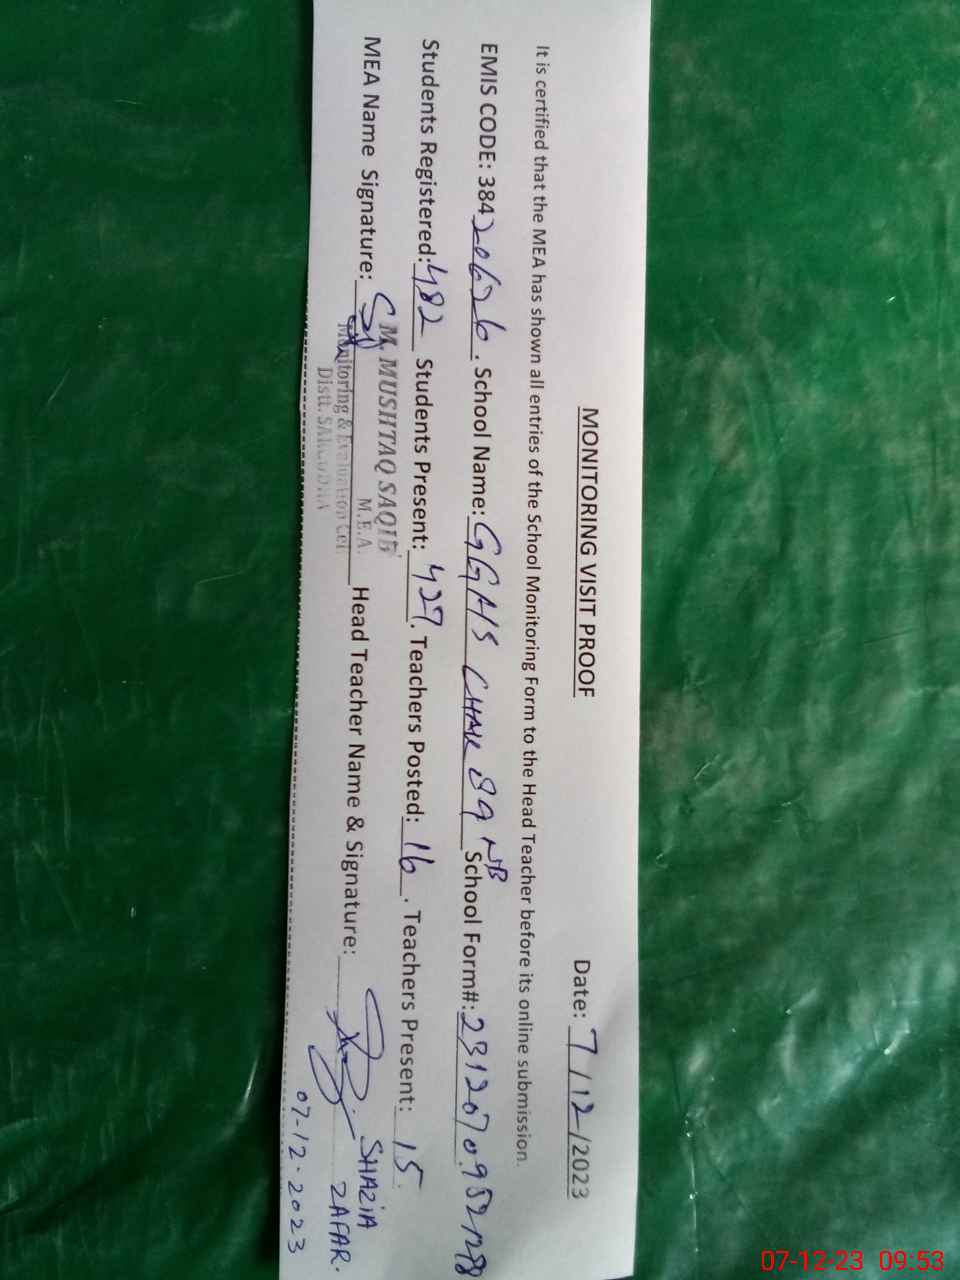 MONITORING VISIT PROOF
Date: 7/12/2023
It is certified that the MEA has shown all entries of the School Monitoring Form to the Head Teacher before its online submission.
EMIS CODE: 38420626. School Name: GGHS CHAK 89 NB School Form#: 231207095
Students Registered: 482 Students Present: 427. Teachers Posted: 16. Teachers Present: 15.
MEA Name Signature: Head Teacher Name & Signature:
M. MUSHTAQ SAQIB
M.E.A.
Monitoring & Evaluation Cell
Distt. SARGODHA
SHAZIA
ZAFAR.
07-12-2023
07-12-23 09:53